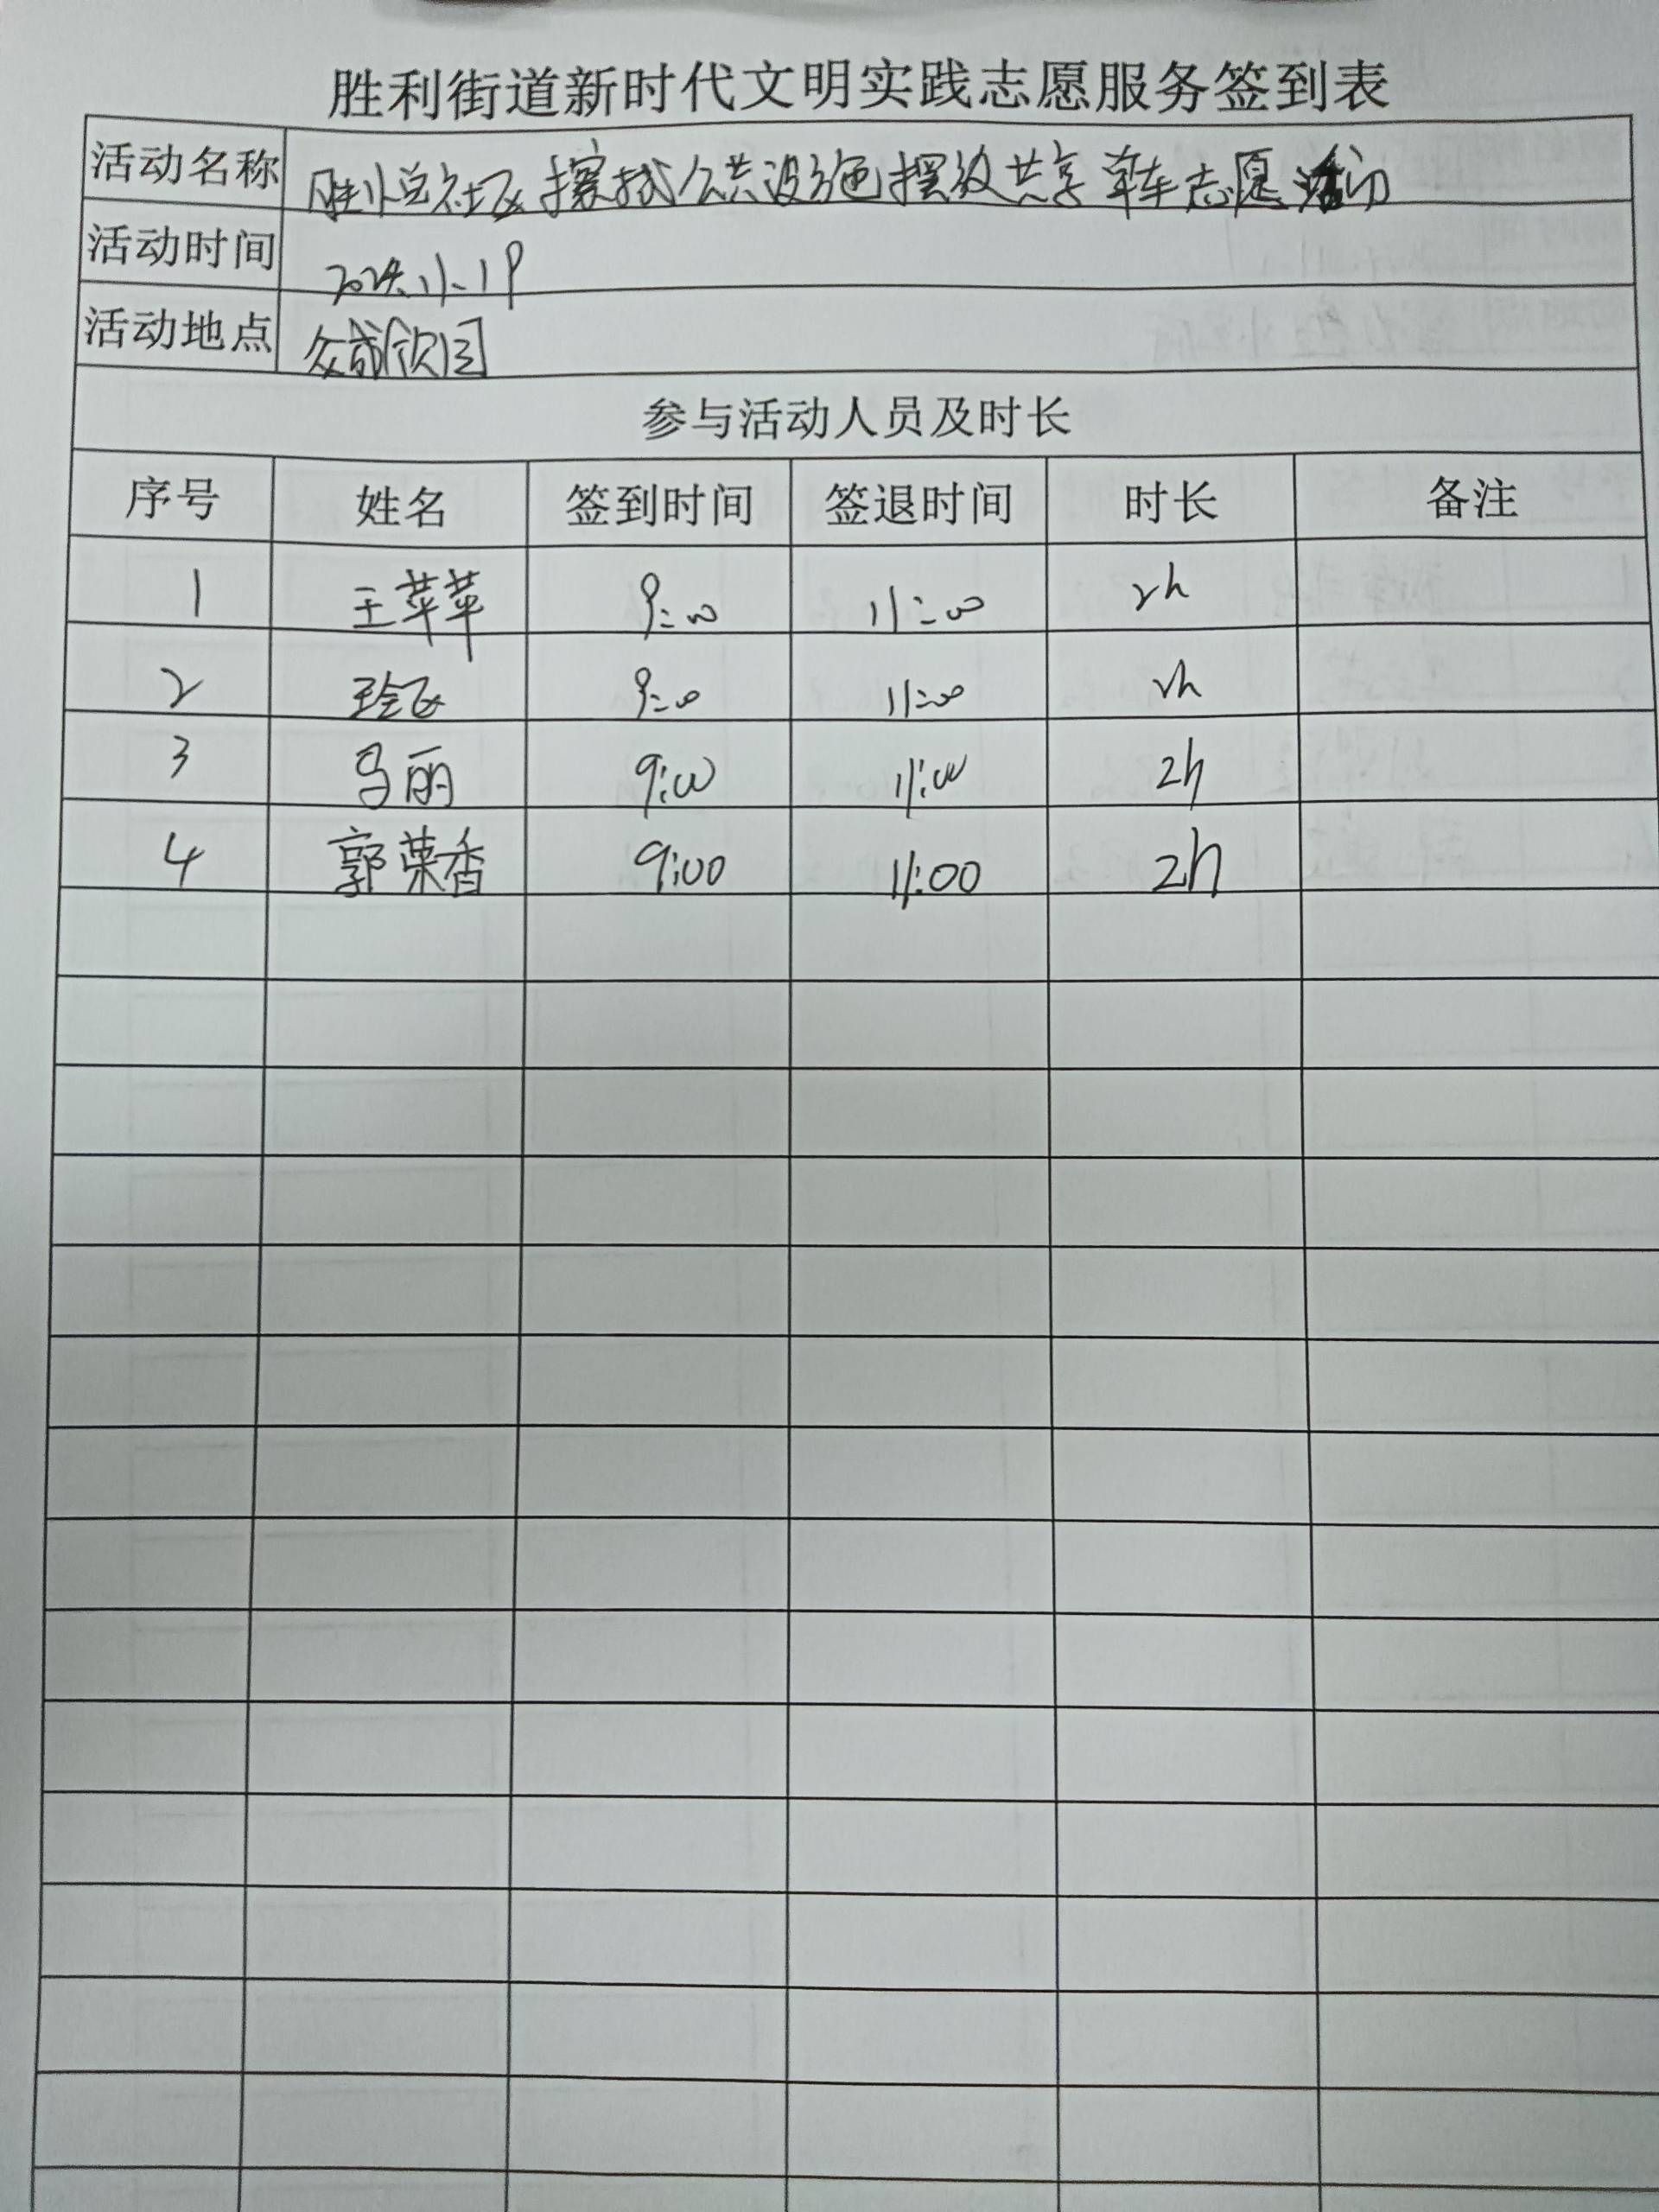 胜利街道新时代文明实践志愿服务签到表
活动名称 社区擦拭公共设施摆放共享单车志愿活动
活动时间
活动地点 众成欣园
参与活动人员及时长
序号 姓名 签到时间 签退时间 时长 备注
1 王苹苹 9:00 11:00 2h
2 9:00 11:00 2h
3 马丽 9:00 11:00 2h
4 郭荣香 9:00 11:00 2h